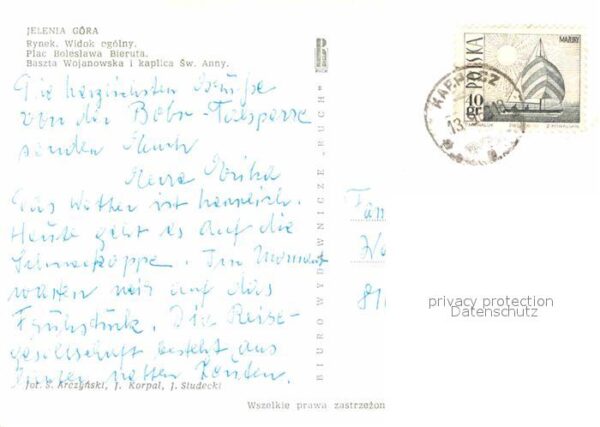 JELENIA GÓRA
Rynek. Widok ogólny.
Plac Bolesława Bieruta.
Baszta Wojanowska i kaplica Św. Anny.
Die herzlichsten Grüße
von der Bobr-Talsperre
senden Euch
Das Wetter ist herrlich.
Heute geht es auf die
Schneekoppe. Im Moment
warten wir auf das
Frühstück. Die Reise-
gesellschaft besteht aus
netten
fot. S. Arczyński, J. Korpal, J. Siudecki
Wszelkie prawa zastrzeżon
BIURO WYDAWNICZE „RUCH"
MAZURY
POLSKA
40
gr
KARPACZ
13
Fam
privacy protection
Datenschutz